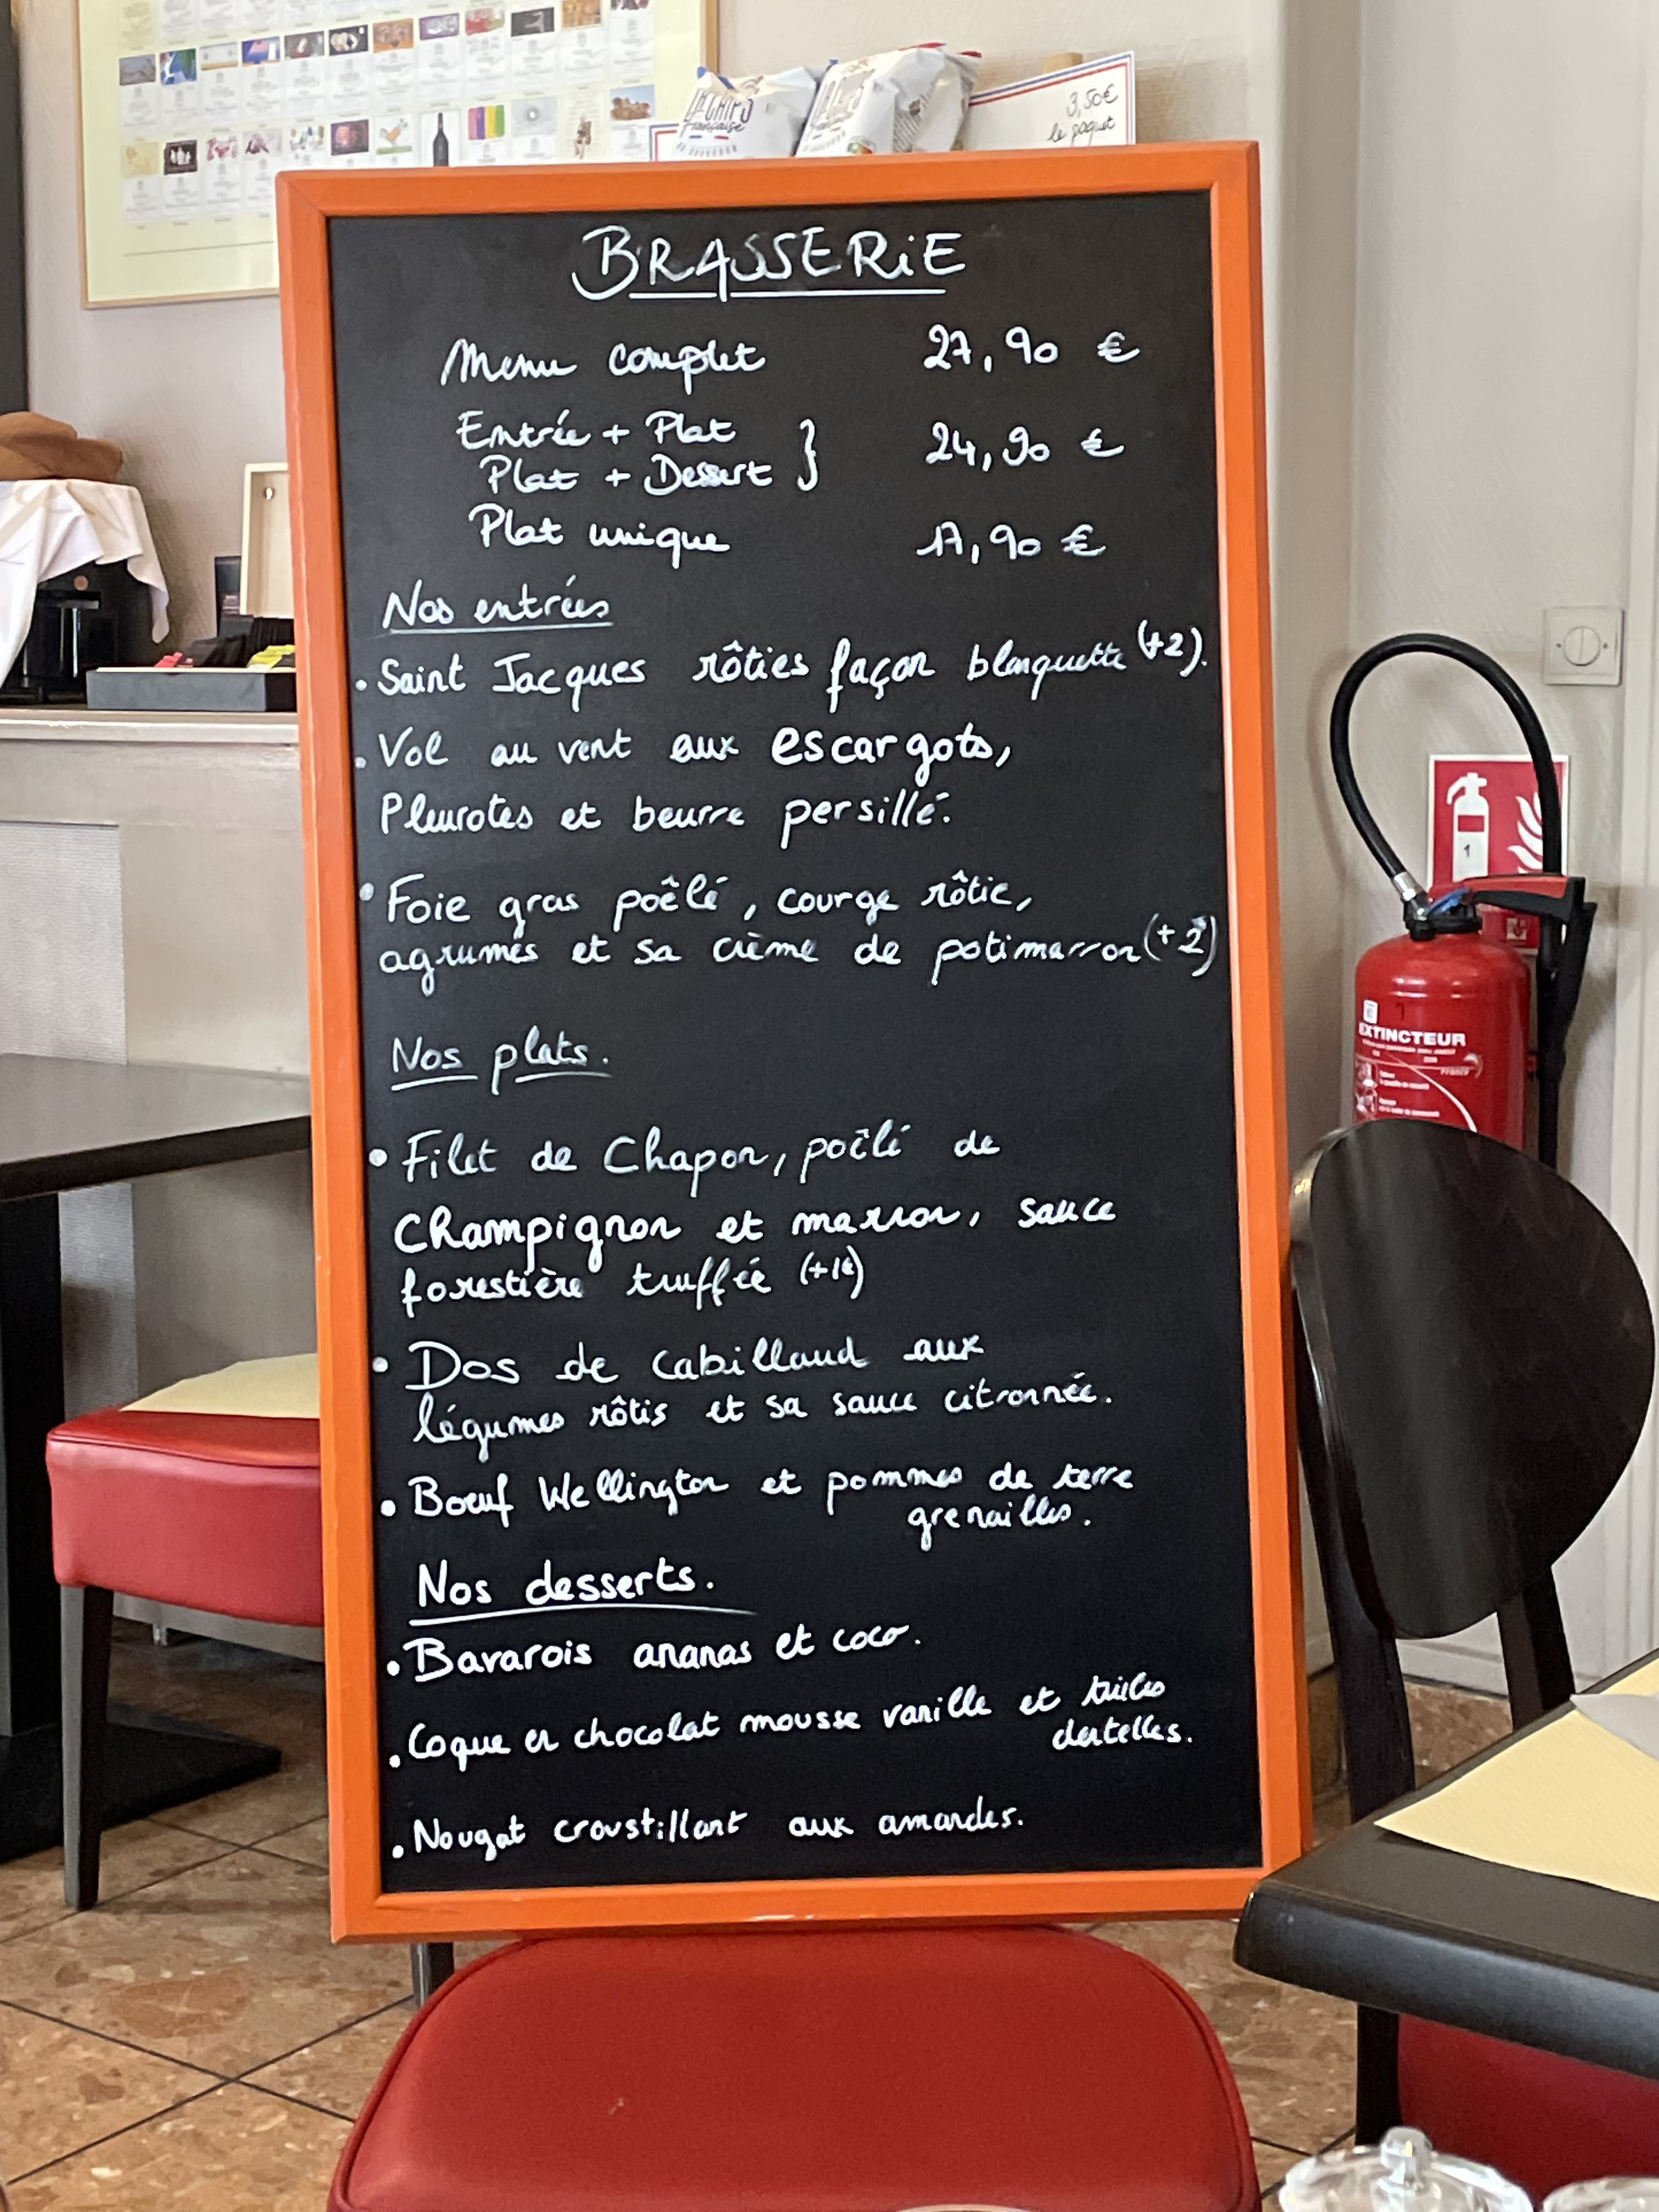 3,50€
le paquet
BRASSERiE
Menu complet 27,90 €
Entrée + Plat
Plat + Dessert } 24,90 €
Plat unique 17,90 €
Nos entrées
. Saint Jacques rôties façon blanquette (+2).
. Vol au vent aux escargots,
Pleurotes et beurre persillé.
• Foie gras poêlé, courge rôtie,
agrumes et sa crème de potimarron (+2)
Nos plats.
• Filet de Chapon, poêlé de
Champignon et marron, sauce
forestière truffée (+1€)
• Dos de cabillaud aux
légumes rôtis et sa sauce citronnée.
• Boeuf Wellington et pommes de terre
grenailles.
Nos desserts.
• Bavarois ananas et coco.
. Coque en chocolat mousse vanille et tuiles
dentelles.
. Nougat croustillant aux amandes.
CHIPS
Française
1
EXTINCTEUR
France